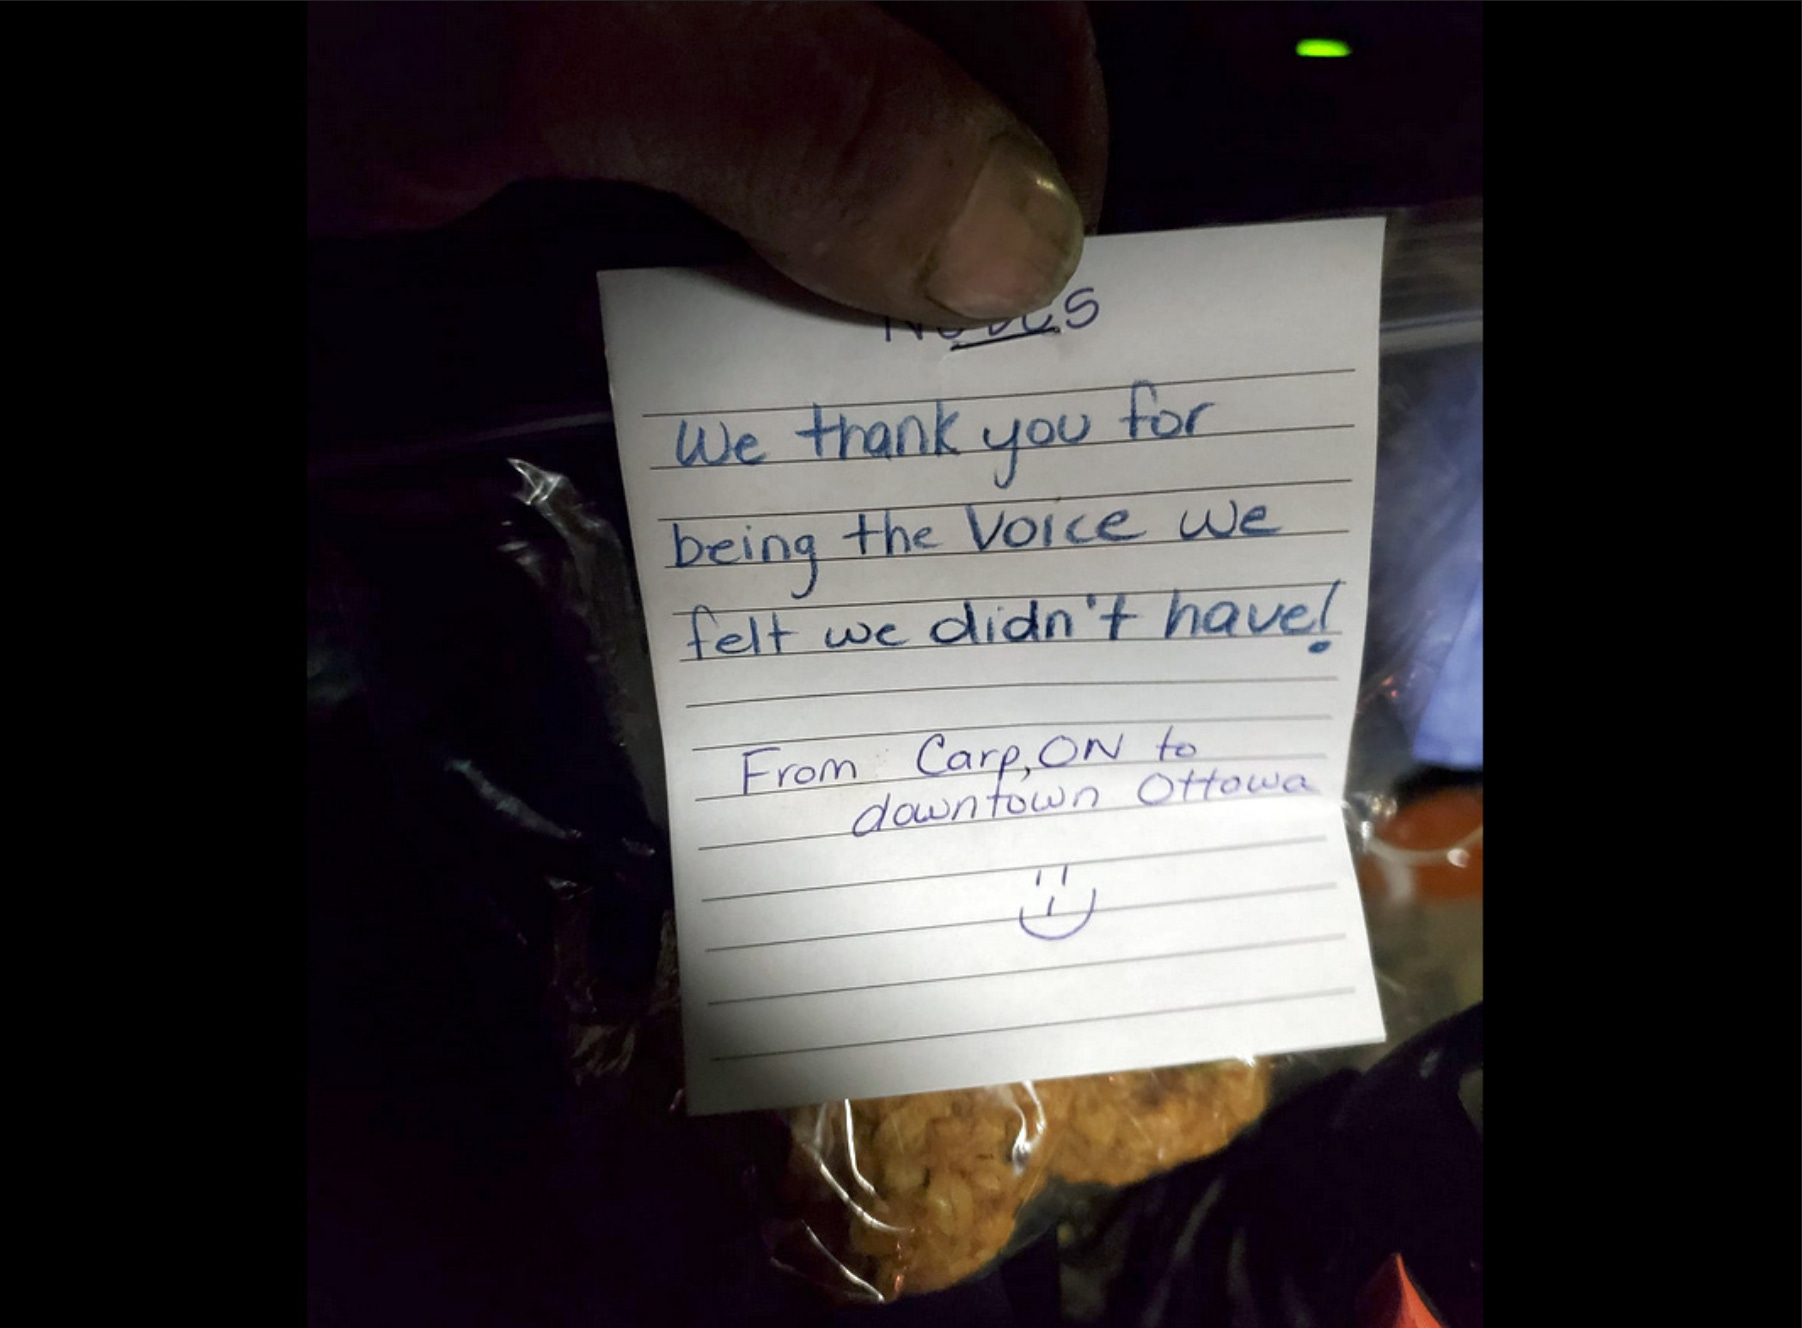 Notes
We thank you for
being the Voice we
felt we didn't have!
From Carp, ON to
downtown Ottowa